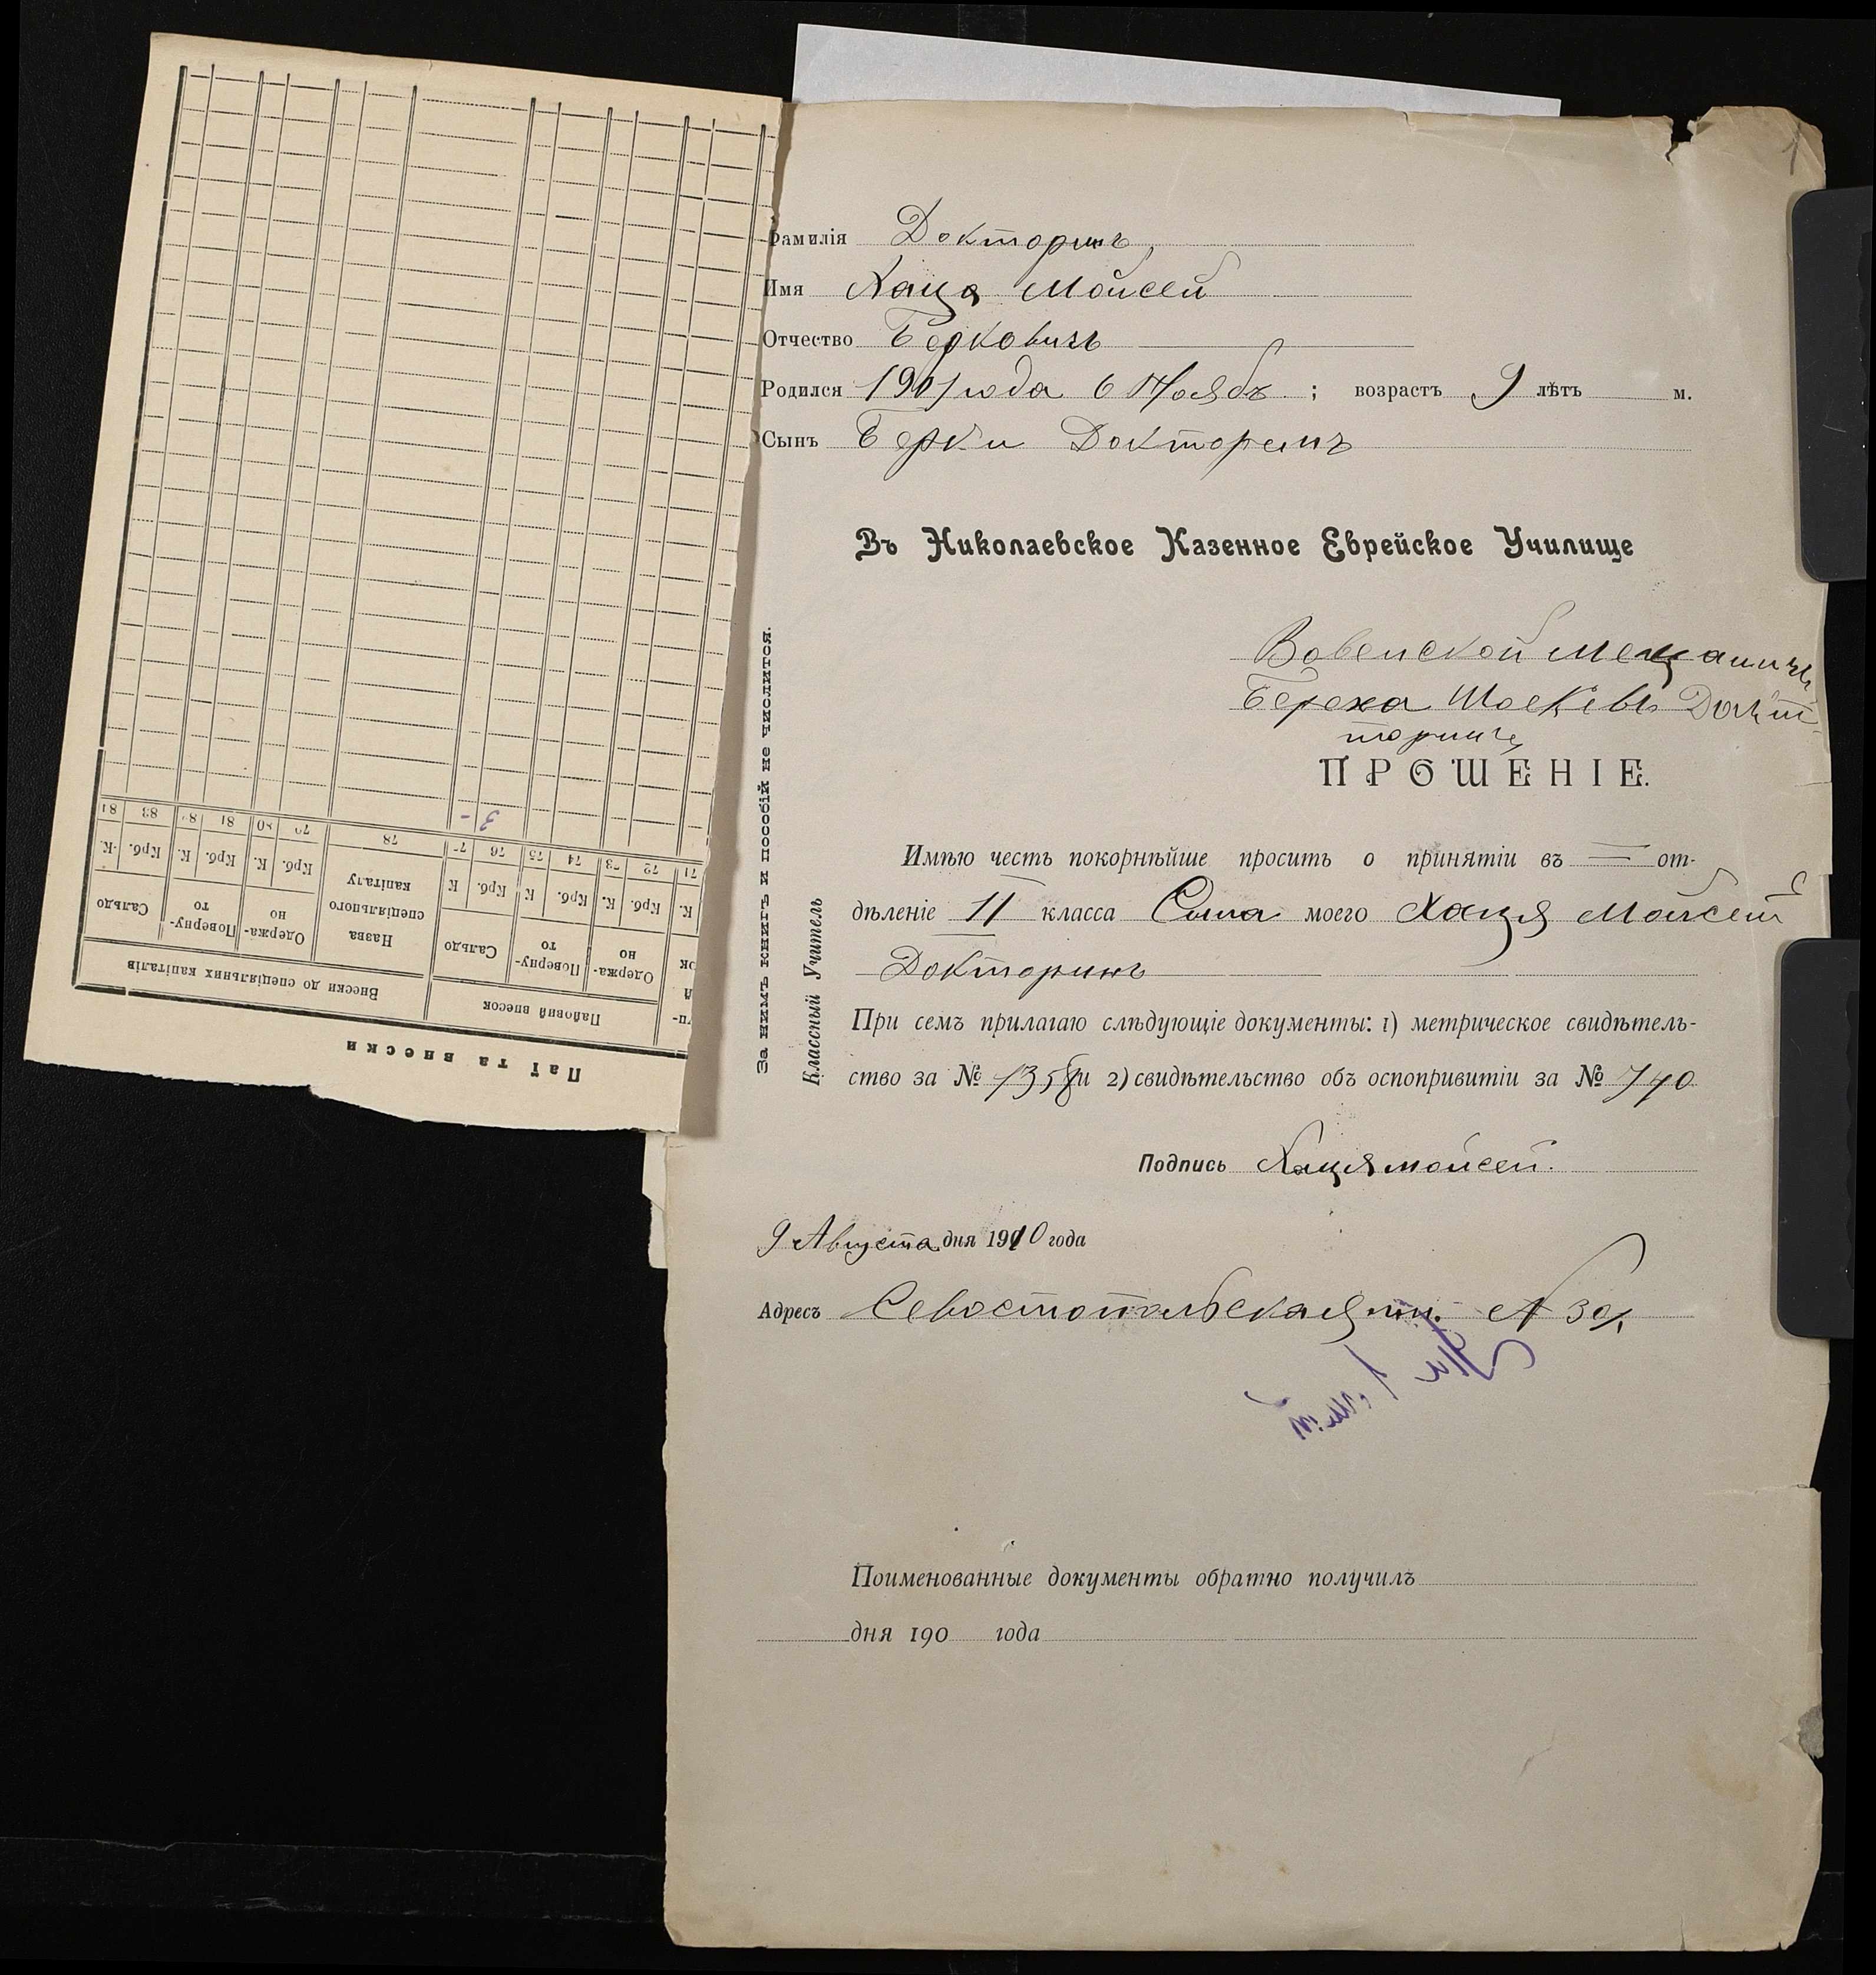 Фамилія Докторинъ,
Имя Хаця Мойсей
Отчество Берковичъ
Родился 1901 года 6 Ноябъ ; возрастъ 9 лѣтъ м.
Сынъ Берки Докторинъ
Въ Николаевское Казенное Еврейское Училище
Мещанинъ
Береха Докт
торинъ
ПРОШЕНІЕ.
Имѣю честь покорнѣйше просить о принятіи въ — от-
дѣленіе II класса Сына моего Хаця Мойсей
Докторинъ
При семъ прилагаю слѣдующіе документы: 1) метрическое свидѣтель-
ство за № 1358 и 2) свидѣтельство объ оспопривитіи за № 740
Подпись Хаця мойсей.
9 Августа дня 1910 года
Адресъ Севостопальская № 30
Поименованные документы обратно получилъ
дня 190 года
За нимъ книгъ и пособій не числится.
Классный Учитель
1
Паї та внески
Пайовий внесок
Внески до спеціяльних капіталів
Одержа-но
Поверну-то
Сальдо
Назва спеціяльного капіталу
Одержа-но
Поверну-то
Сальдо
К. Крб. К. Крб. К Крб. К Крб. К. Крб. К. Крб. К.
71 72 73 74 75 76 78 81 83
3 -